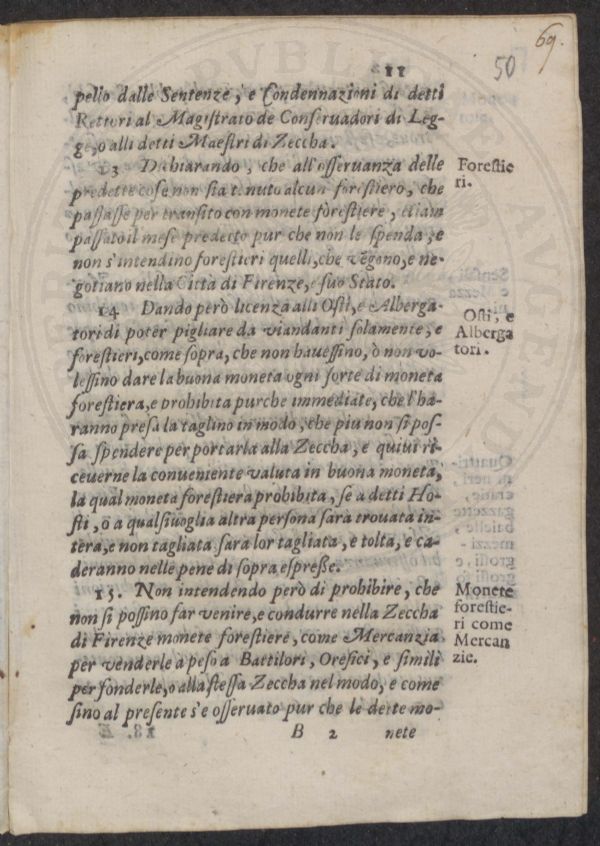 69.
50
11
pello dalle Sentenze, e Condennazioni di detti
Rettori al Magistrato de Conseruadori di Leg-
ge, o alli detti Maestri di Zeccha.
13 Dichiarando, che all'osseruanza delle
predette cose non sia tenuto alcun forestiero, che
passasse per transito con monete forestiere, etiam
passato il mese predetto pur che non le spenda, e
non s'intendino forestieri quelli, che vēgano, e ne-
gotiano nella Città di Firenze, e suo Stato.
Forestie
ri.
14 Dando però licenza alli Osti, e Alberga-
tori di poter pigliare da viandanti solamente, e
forestieri, come sopra, che non hauessino, ò non vo-
lessino dare la buona moneta ogni sorte di moneta
forestiera, e prohibita purche immediate, che l'ha-
ranno presa la taglino in modo, che piu non si pos-
sa spendere per portarla alla Zeccha, e quiui ri-
ceuerne la conueniente valuta in buona moneta,
la qual moneta forestiera prohibita, se a detti Ho-
sti, o a qualsiuoglia altra persona sarà trouata in-
tera, e non tagliata sara lor tagliata, e tolta, e ca-
deranno nelle pene di sopra espresse.
Osti, e
Alberga
tori.
15. Non intendendo però di prohibire, che
non si possino far venire, e condurre nella Zeccha
di Firenze monete forestiere, come Mercanzia
per venderle à peso a Battilori, Orefici, e simili
per fonderle, o alla stessa Zeccha nel modo, e come
sino al presente s'e osseruato pur che le dette mo-
Monete
forestie-
ri come
Mercan
zie.
B 2 nete